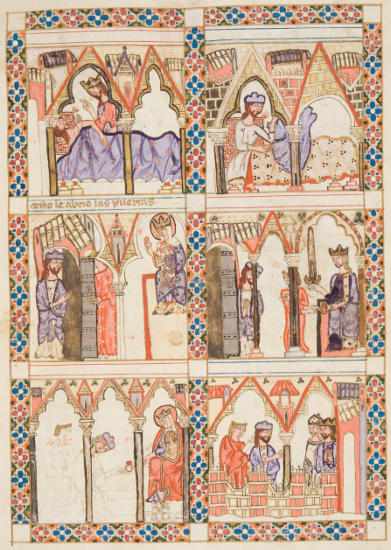 como le abrio las puertas